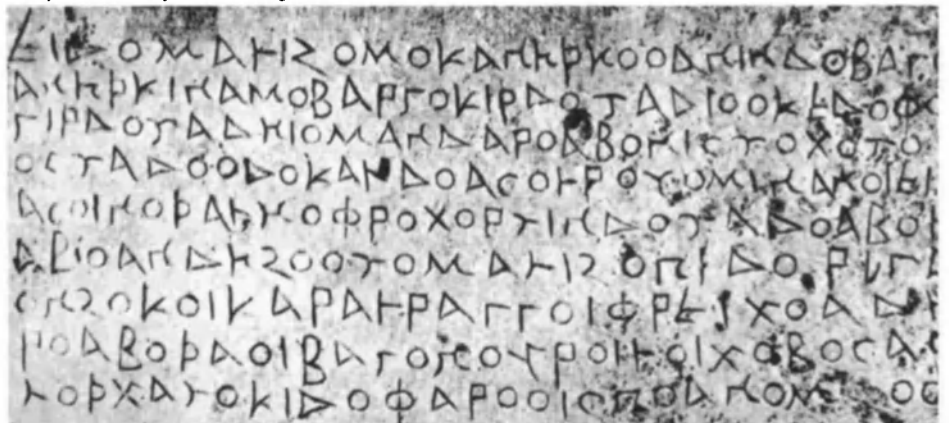 ΕΙΔΟΜΑΛΙΖΟΜΟΚΑΝΗϷΚΟΟΑΝΙΝΔΟΒΑΓ
ΑΝΗϷΚΙΝΑΜΟΒΑΡΓΟΚΙΡΔΟΤΑΔΙΟΟΚΕΔΟΦ
ΓΙΡΔΟΤΑΔΗΙΟΜΑΝΔΑΡΟΑΒΟΝΙΣΤΟΧΟΤΟ
ΟΣΤΑΔΟΟΔΟΚΑΛΔΟΑΣΟΛΡΟΥΟΜΙΝΑΝΟΙΕΙ
ΑΣΟΙΝΟϷΑΛΜΟΦΡΟΧΟΡΤΙΝΔΟΤΑΔΟΑΒΟ
ΑΒΟΑΝΔΗΖΟΟΤΟΜΑΛΙΖΟΠΙΔΟΡΙΓ
ΟΝΖΟΚΟΙΚΑΡΑΛΡΑΓΓΟΙΦΡΕΙΧΟΑΔ
ΟΑΒΟϷΑΟΙΒΑΓΟΠΟΥΡΟΙΛΟΙΧΟΒΟΣΑ
ΛΟϷΧΑΛΟΚΙΔΟΦΑΡΟΟΙΣΠΟΑΝΟΜΟ